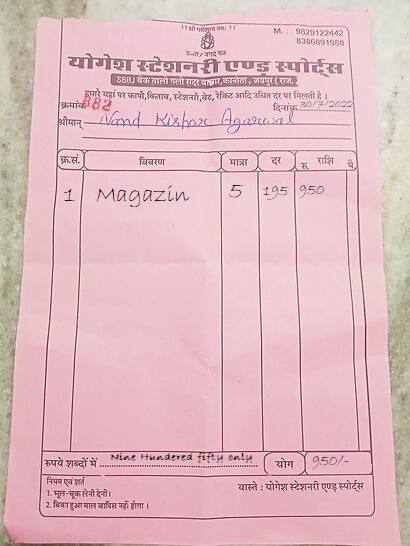 ।। श्री गणेशाय नमः ।।
M. : 9829122442
8386891988
उधार/नगद पत्र
योगेश स्टेशनरी एण्ड स्पोर्ट्स
SBBJ बैंक वाली गली सदर बाजार, कानोता, जयपुर (राज.)
हमारे यहां पर कापी, किताब, स्टेशनरी, बेट, रेकिट आदि उचित दर पर मिलती है।
क्रमांक 882 दिनांक 30/7/2022
श्रीमान् Nand Kishor Agarwal
क्र.सं. विवरण मात्रा दर राशि
रु. पै.
1 Magazin 5 195 950
रुपये शब्दों में Nine Hundered fifty only योग 950/-
नियम एवं शर्त
1. भूल-चूक लेनी देनी।
2. बिका हुआ माल वापिस नहीं होगा।
वास्ते : योगेश स्टेशनरी एण्ड स्पोर्ट्स